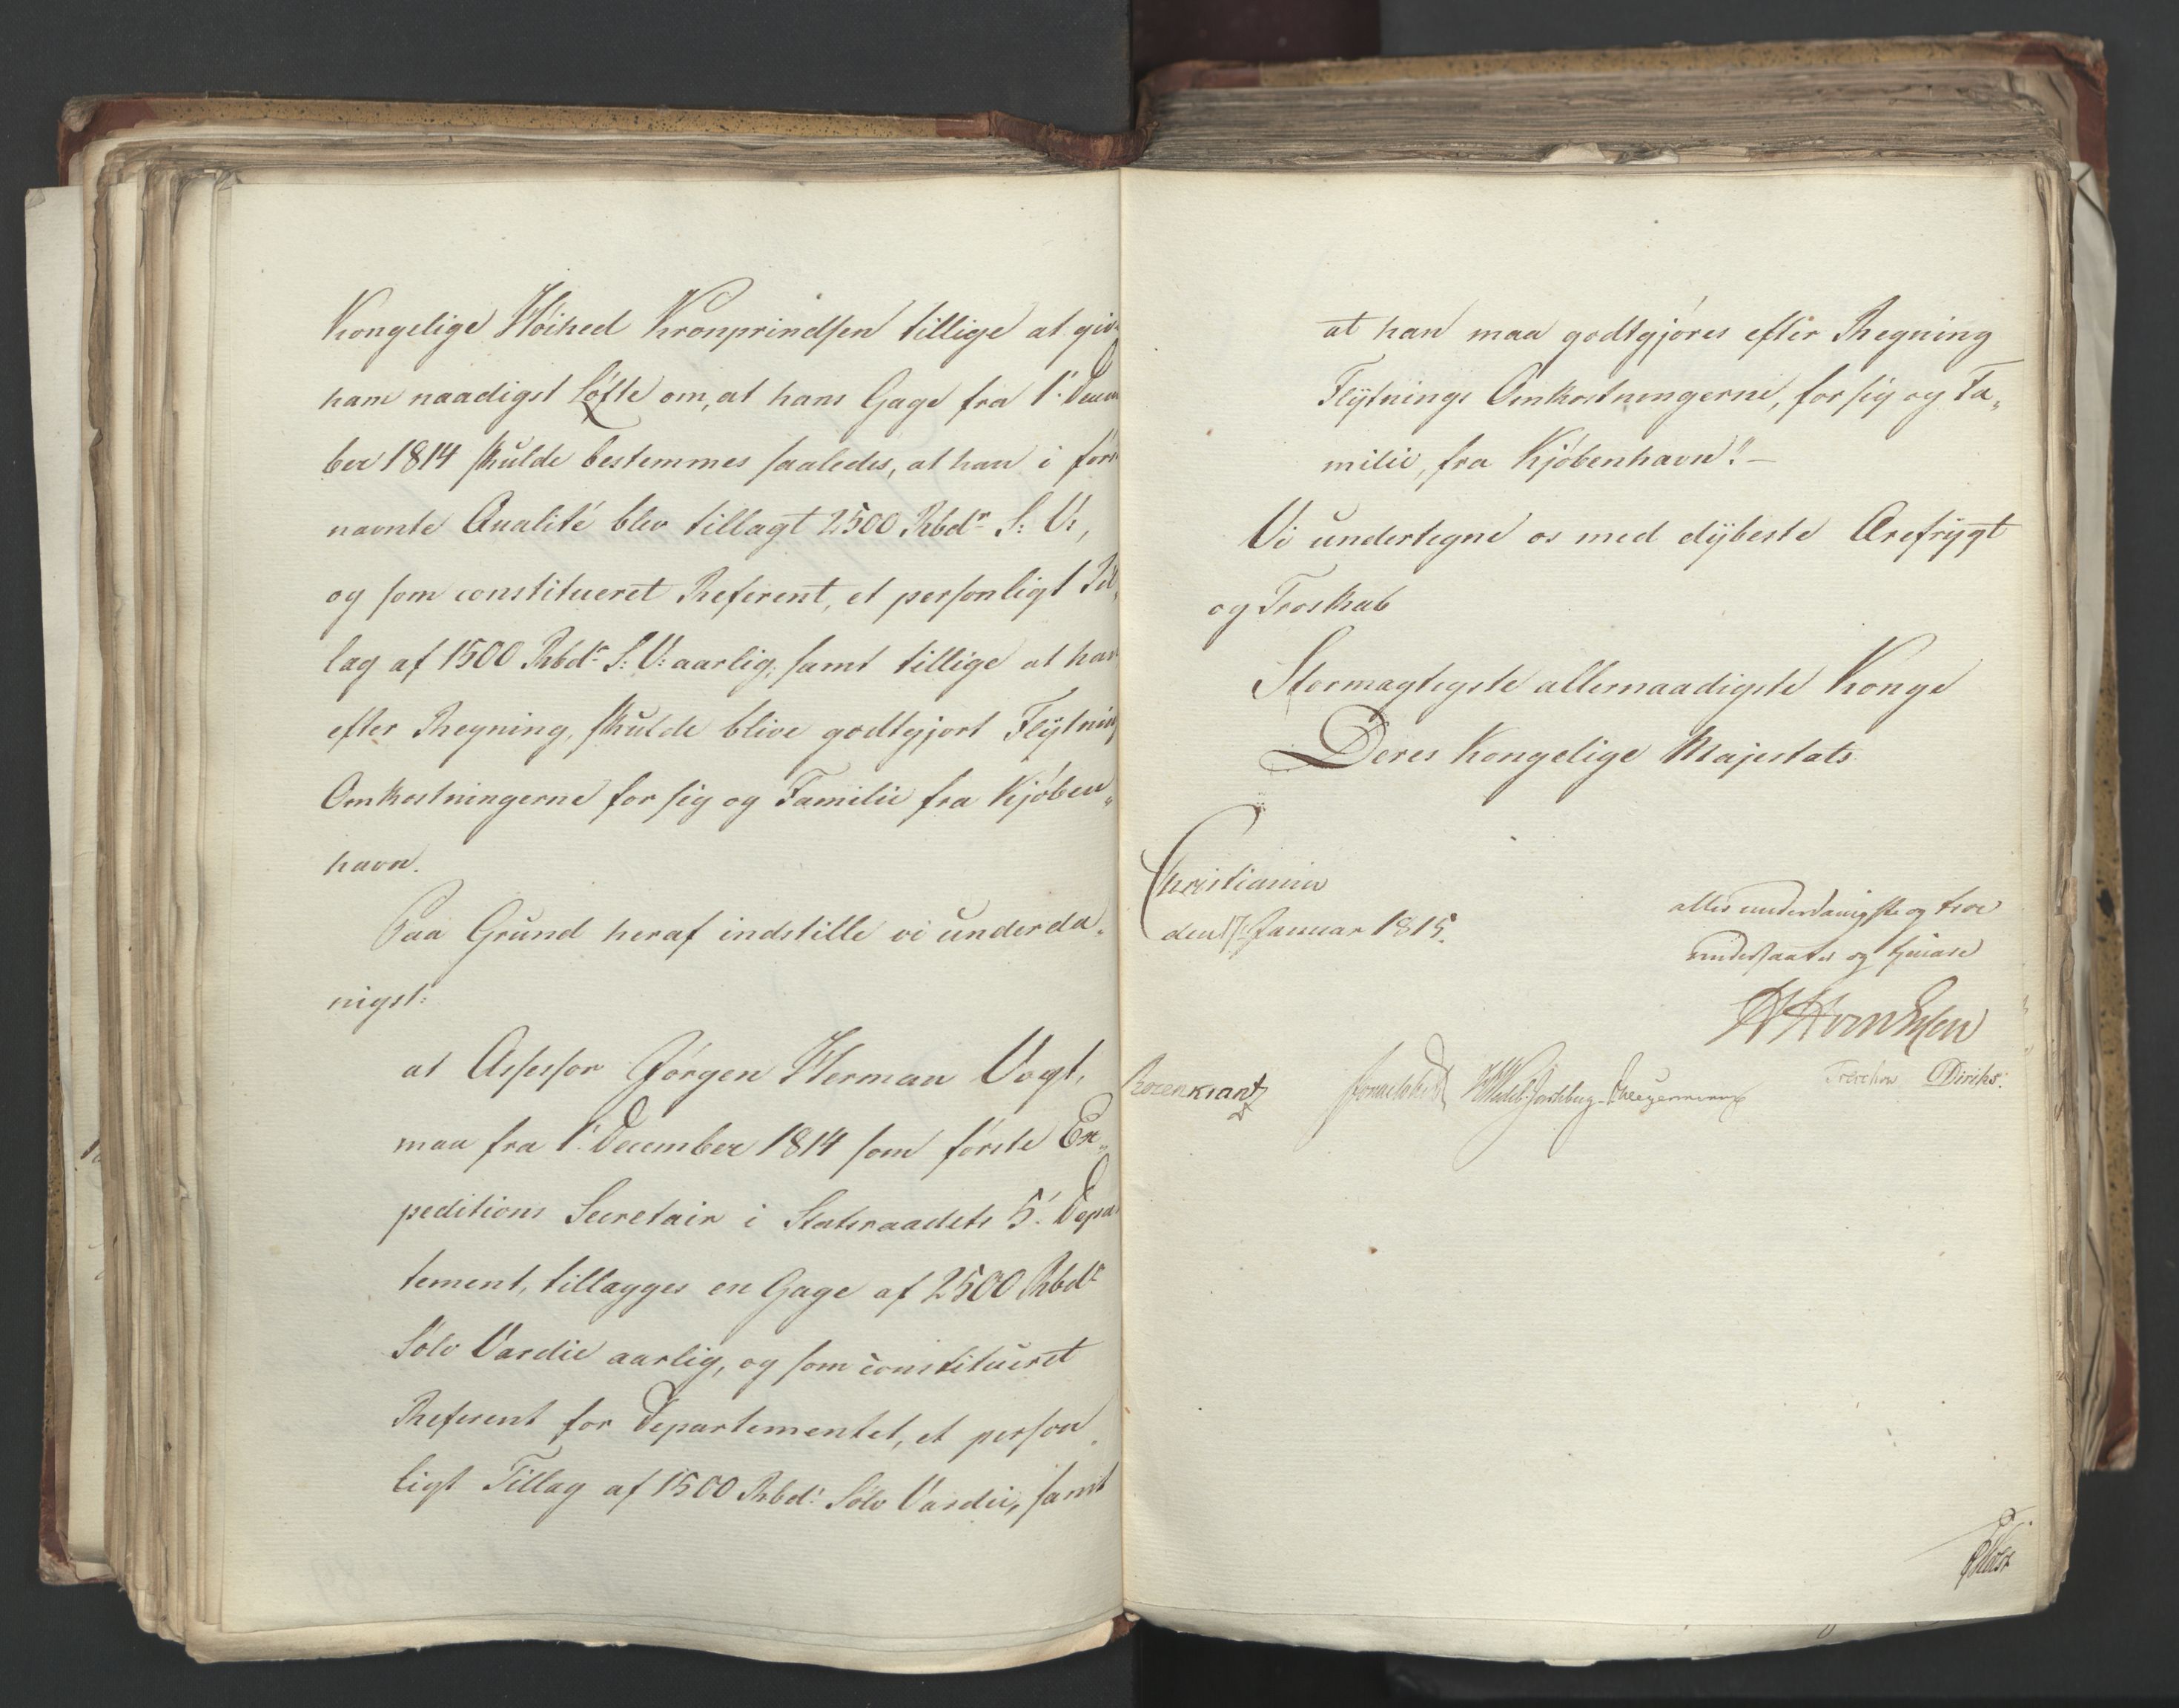 Kongelige Høihed Kronprindsen tillige at giv
ham naadigst Løfte om, at hans Gage fra 1ste Decem
ber 1814 skulde bestemmes saaledes, at han i før
nævnte Qualité blev tillagt 2500 Rbdr S: V:,
og som constitueret Referent, et personligt Til„
læg af 1500 Rbdr S: V: aarlig, samt tillige at han
efter Regning, skulde blive godtgjort Flÿtning
Omkostningerne for sig og Familie fra Kjöben„
havn.
Paa Grund heraf indstille vi underda„
nigst:
at Assessor Jörgen Herman Vogt,
maa fra 1. December 1814 som förste Ex„
peditions Secretair i Statsraadets 5. Depar
tement, tillægges en Gage af 2500 Rbdr
Sölv Værdie aarlig, og som constitueret
Referent for Departementet, et person„
ligt Tillæg af 1500 Rbdr Sölv Værdie, samt
at han maa godtgjöres efter Regning
Flÿtnings Omkostningerne, for sig og Fa„
milie, fra Kjöbenhavn." —
Vi undertegne os med dÿbeste Ærefrÿgt
og Troskab
Stormægtigste allernaadigste Konge
Deres Kongelige Majestæts
Christiania
den 17 Januar 1815.
allerunderdanigste og troe
undersaatter og tjenere
Rosenkrantz
Sommerhielm
Wedel-Jarlsberg
Treschow
Diriks.